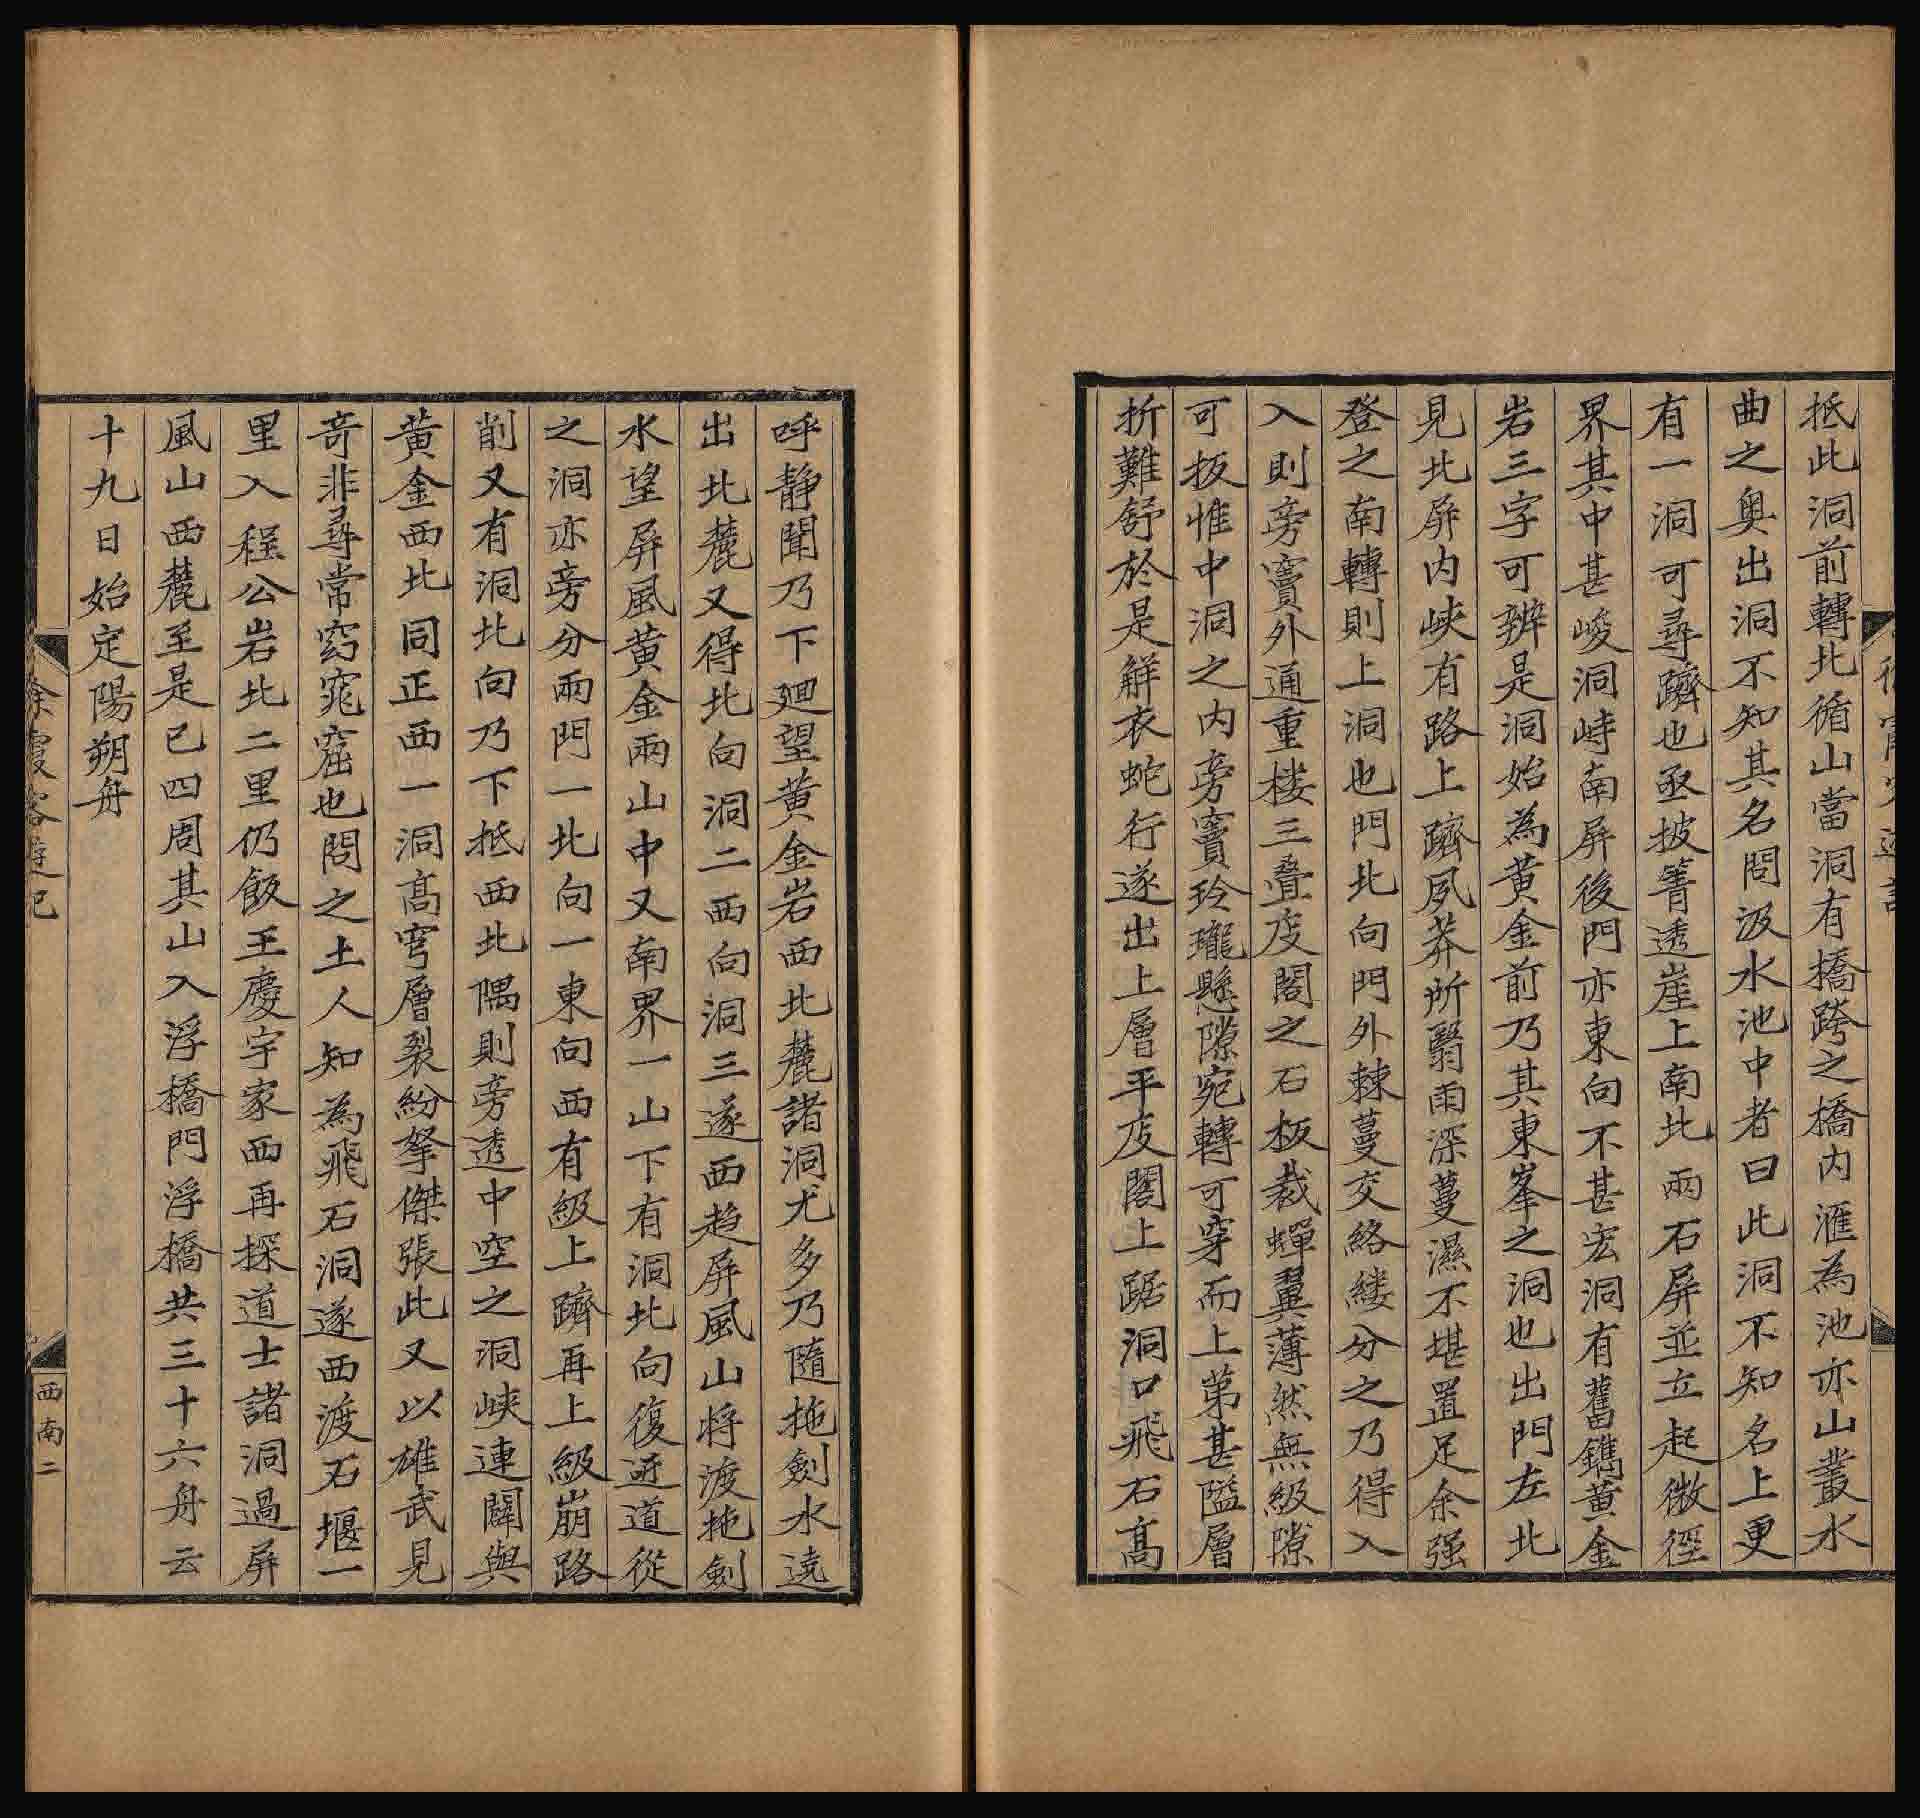 抵此洞前轉北循山當洞有橋跨之橋內滙為池亦山叢水
曲之奥出洞不知其名問汲水池中者曰此洞不知名上更
有一洞可尋躋也亟披箐透崖上南北兩石屏並立起微徑
界其中甚峻洞峙南屏後門亦東向不甚宏洞有舊鐫黄金
岩三字可辨是洞始為黄金前乃其東峯之洞也出門左北
見北屏內峽有路上躋夙莽所翳雨深蔓濕不堪置足余强
登之南轉則上洞也門北向門外棘蔓交絡縷分之乃得入
入則旁竇外通重楼三叠庋閣之石板裁蟬翼薄然無級隙
可扳惟中洞之內旁竇玲瓏懸隙宛轉可穿而上第甚隘層
折難舒於是觧衣蛇行遂出上層平庋閣上踞洞口飛石高
呼靜聞乃下廻望黄金岩西北麓諸洞尤多乃隨拖劍水遶
出北麓又得北向洞二西向洞三遂西趋屏風山将渡拖劍
水望屏風黄金兩山中又南界一山下有洞北向復迂道從
之洞亦旁分兩門一北向一東向西有級上躋再上級崩路
削又有洞北向乃下抵西北隅則旁透中空之洞峽連闢與
黄金西北同正西一洞高穹層裂紛拏傑張此又以雄武見
竒非尋常窈窕窟也問之土人知為飛石洞遂西渡石堰一
里入程公岩北二里仍飯王慶宇家西再探道士諸洞過屏
風山西麓至是已四周其山入浮橋門浮橋共三十六舟云
十九日始定陽朔舟
徐霞客遊記
西南二